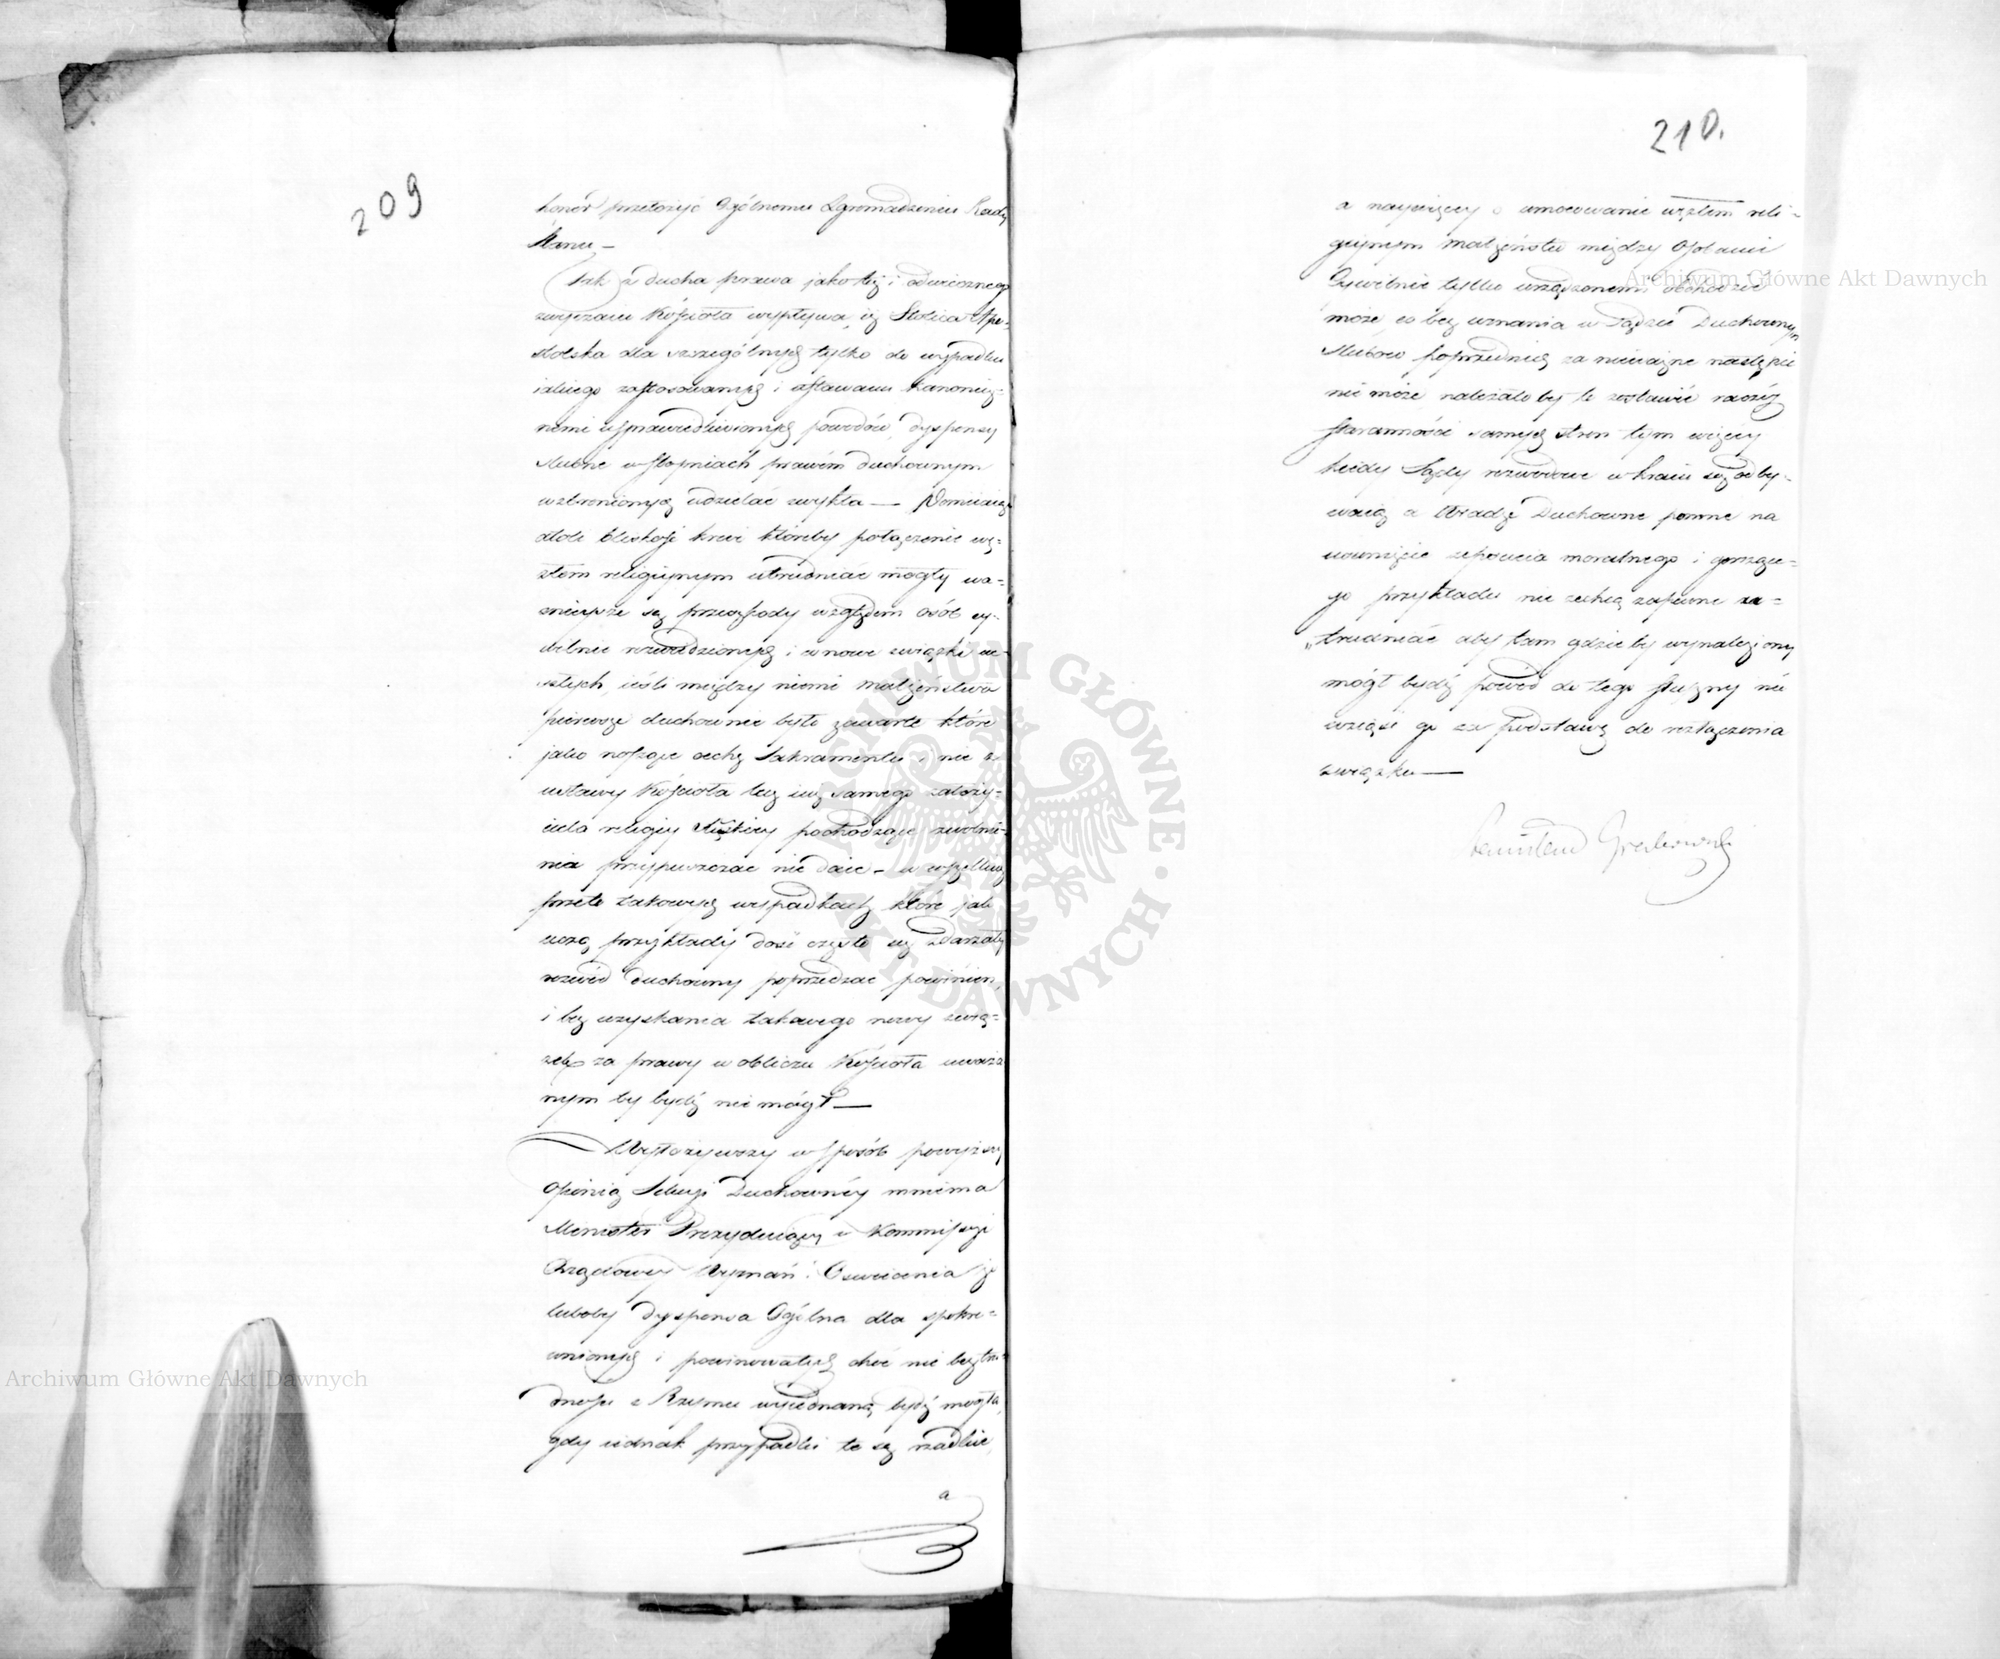 209
honór przełożyć Ogólnemu Zgromadzeniu Rady
Stanu —
Jak z ducha prawa jako też i odwiecznego
zwyczaiu Kościoła wypływa, iż Stolica Apo-
stolska dla szczególnych tylko do wypadku
iakiego zastosowanych i ustawami kanonicz-
nemi usprawiedliwionych powodów, dyspensy
ślubne w stopniach prawem duchownym
wzbronionych udzielać zwykła —
bliskości krwi któreby połączenie wę-
złem religijnym utrudniać mogły wa-
żnieysze są przeszkody względem osób cy-
wilnie rozwiedzionych i w nowe związki we-
szłych, ieśli między niemi małżeństwa
pierwsze duchownie było zawarte które
jako nosząc cechę Sakramentu i nie z
ustawy Kościoła lecz iuż samego założy-
ciela religiy pochodząc zwolnie-
nia przypuszczać nie daie — w wszelkich
przeto takowych wypadkach które jak
uczą przykłady dość często się zdarzały
rozwód duchowny poprzedzać powinien,
i bez uzyskania takowego nowy zwią-
zek za prawy w obliczu Kościoła uważa
nym by bydź nie mógł —
Wyłożywszy w sposób powyższy
opinią Sekcyi Duchowney mniema
Minister Prezyduiący w Kommissyi
Rządowey Wyznań i Oświecenia iż
luboby dyspensa Ogólna dla spokre-
wnionych i powinowatych choć nie bez tru-
dności z Rzymu wyiednaną bydź mogła,
gdy iednak przypadki te są rzadkie,
a
210.
a naywięcey o umocowanie węzłem reli-
giynym małżeństw między Osobami
Cywilnie tylko urządzonemi obchodzić
może, co bez uznania w Sądzie Duchownym
ślubów poprzednich za nieważne nastąpić
nie może należałoby to zostawić raczéy
staranności samych stron tym więcey
kiedy Sądy rozwodowe w kraiu się odby-
waią a Władze Duchowne pomne na
usunięcie zepsucia moralnego i gorszące-
go przykładu nie zechcą zapewne za-
„trudniać aby tam gdzieby wynaleziony
mógł bydź powód do tego słuszny nie
wziąść go za podstawę do rozłączenia
związku —
Stanisław Grabowski
Archiwum Główne Akt Dawnych
Archiwum Główne Akt Dawnych
ARCHIWUM GŁÓWNE · AKT DAWNYCH ·